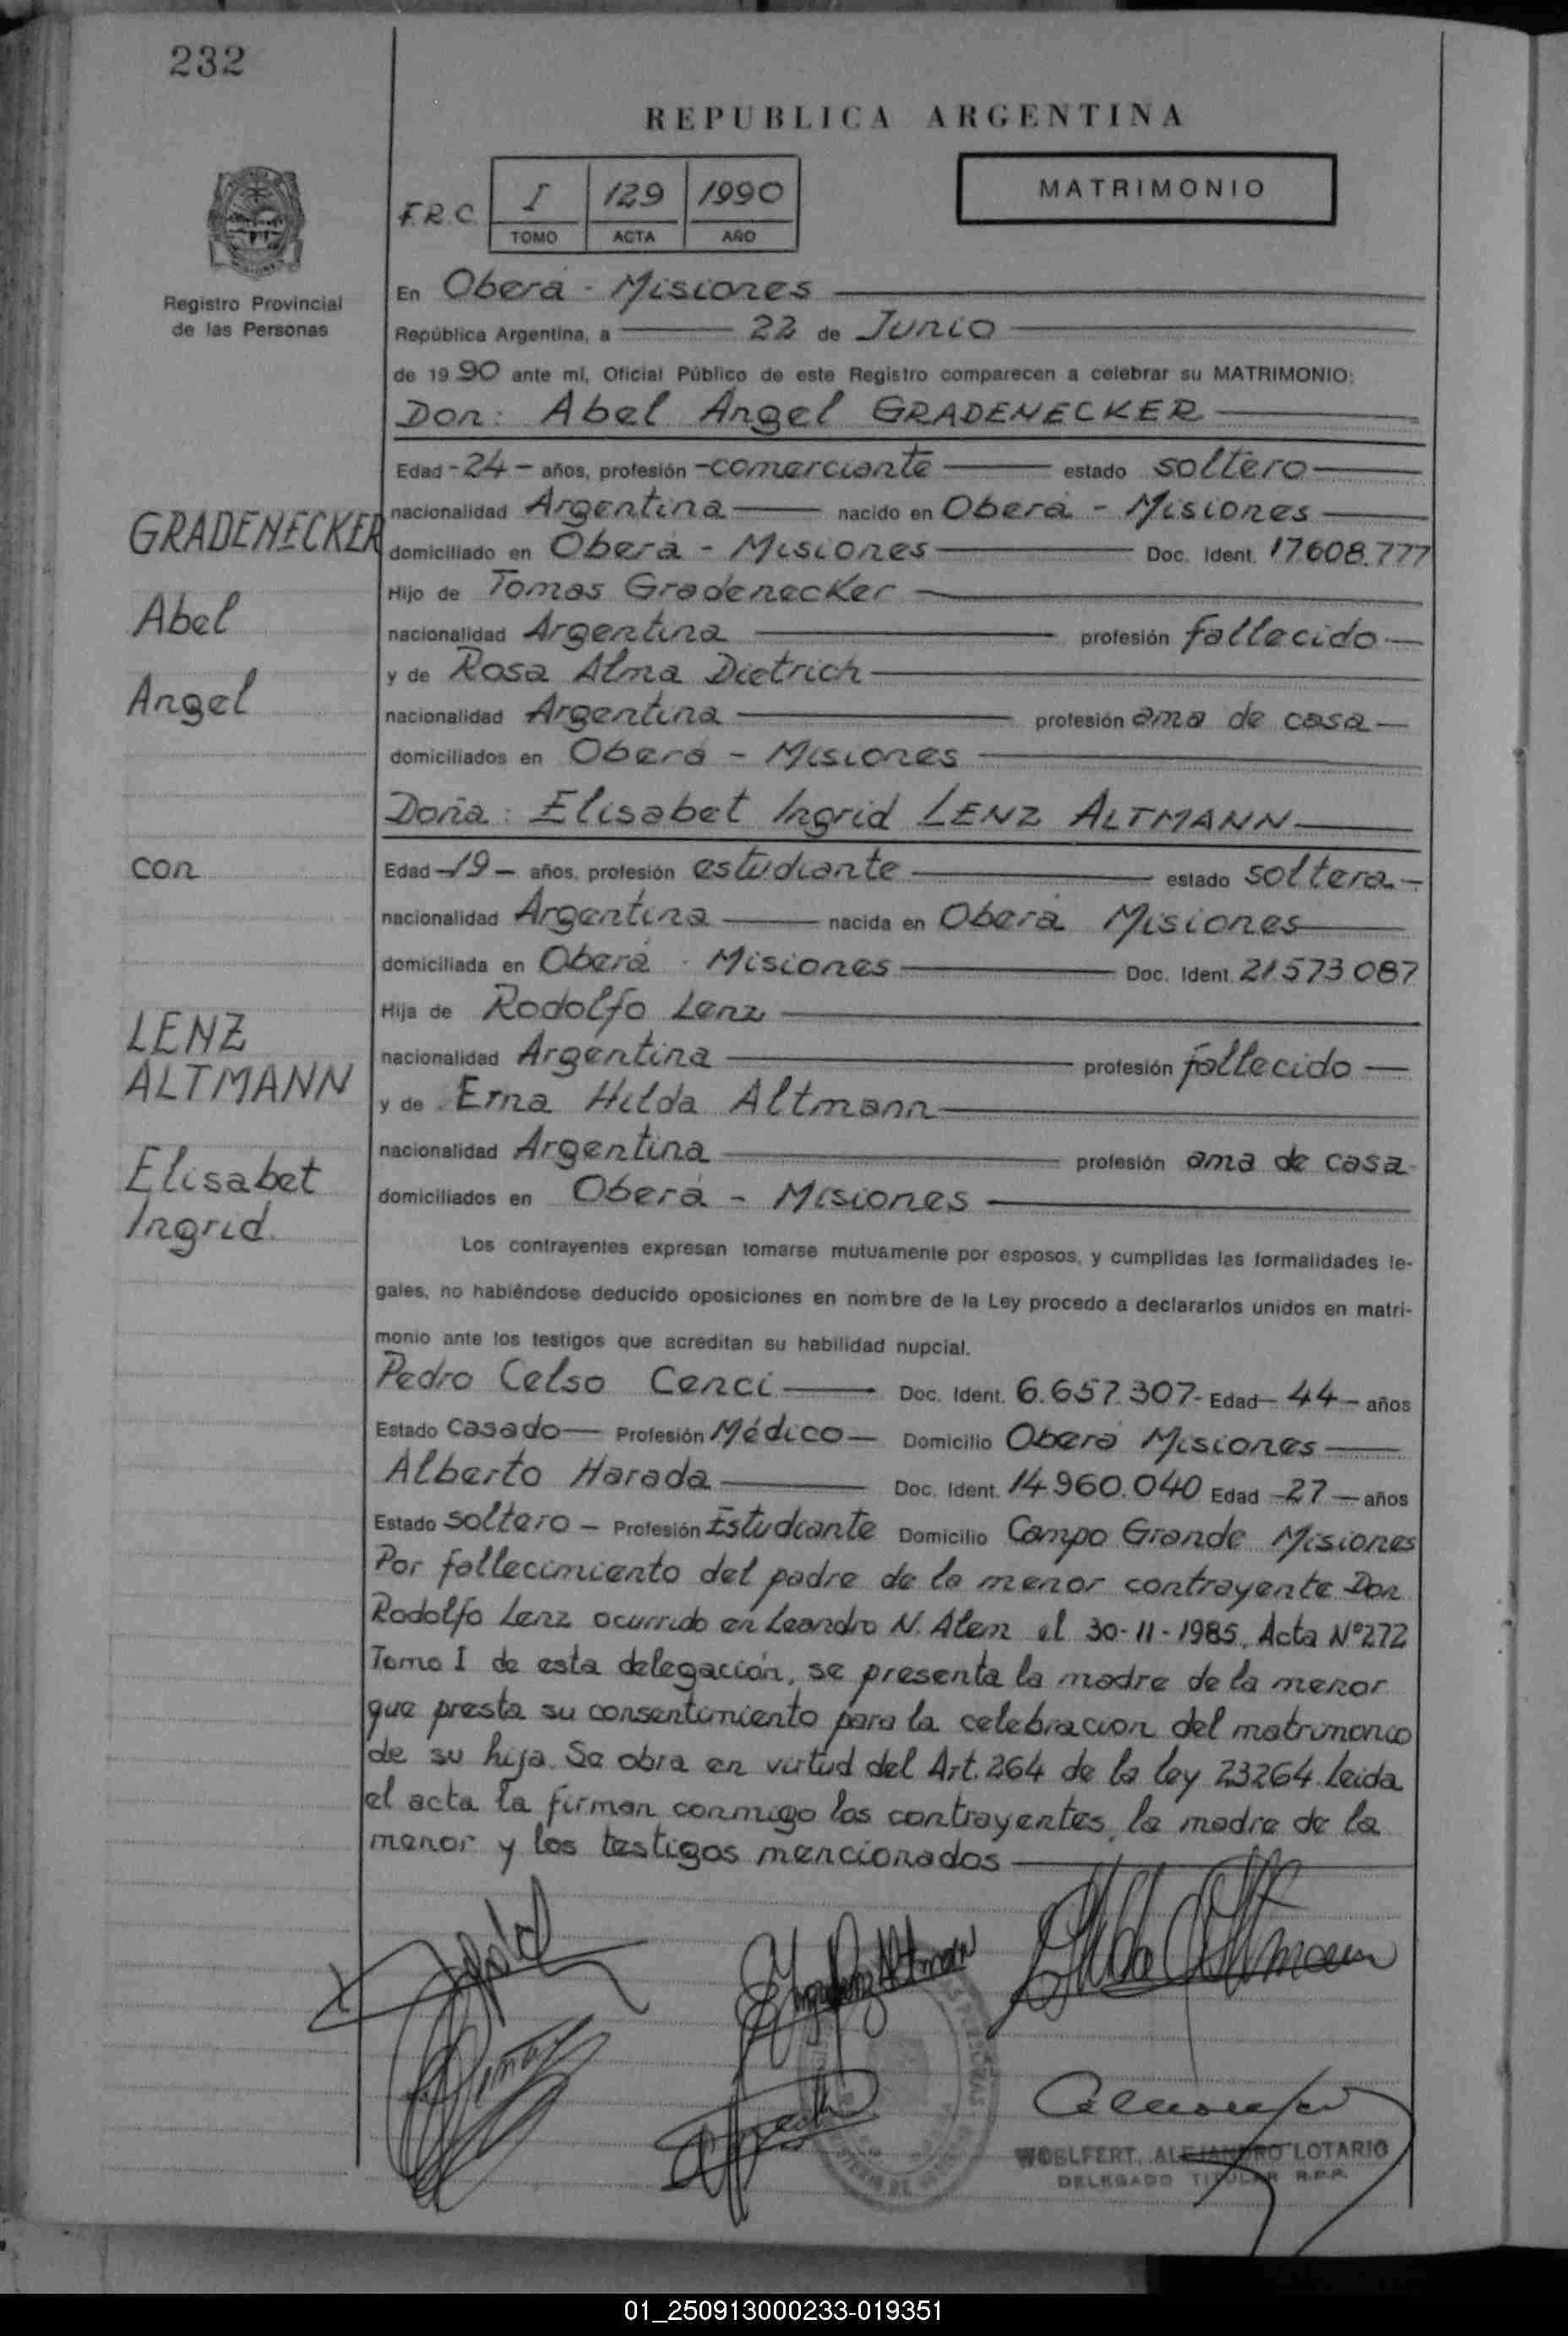 232
REPUBLICA ARGENTINA
F.R.C. I 129 1990
TOMO ACTA AÑO
MATRIMONIO
Registro Provincial
de las Personas
En Oberá - Misiones
República Argentina, a 22 de Junio
de 1990 ante mí, Oficial Público de este Registro comparecen a celebrar su MATRIMONIO:
Don: Abel Angel GRADENECKER
Edad -24- años, profesión -comerciante estado soltero
nacionalidad Argentina nacido en Oberá - Misiones
domiciliado en Oberá - Misiones Doc. Ident. 17.608.777
Hijo de Tomas Gradenecker
nacionalidad Argentina profesión fallecido
y de Rosa Alma Dietrich
nacionalidad Argentina profesión ama de casa
domiciliados en Oberá - Misiones
Doña: Elisabet Ingrid LENZ ALTMANN
Edad -19- años, profesión estudiante estado soltera
nacionalidad Argentina nacida en Oberá Misiones
domiciliada en Oberá - Misiones Doc. Ident. 21.573.087
Hija de Rodolfo Lenz
nacionalidad Argentina profesión fallecido
y de Erna Hilda Altmann
nacionalidad Argentina profesión ama de casa
domiciliados en Oberá - Misiones
GRADENECKER
Abel
Angel
con
LENZ
ALTMANN
Elisabet
Ingrid
Los contrayentes expresan tomarse mutuamente por esposos, y cumplidas las formalidades le-
gales, no habiéndose deducido oposiciones en nombre de la Ley procedo a declararlos unidos en matri-
monio ante los testigos que acreditan su habilidad nupcial.
Pedro Celso Cenci Doc. Ident. 6.657.307- Edad -44- años
Estado casado Profesión Médico Domicilio Oberá Misiones
Alberto Harada Doc. Ident. 14.960.040 Edad -27- años
Estado soltero - Profesión Estudiante Domicilio Campo Grande Misiones
Por fallecimiento del padre de la menor contrayente Don
Rodolfo Lenz ocurrido en Leandro N. Alem el 30-11-1985, Acta Nº272
Tomo I de esta delegación, se presenta la madre de la menor
que presta su consentimiento para la celebracion del matrimonio
de su hija. Se obra en virtud del Art. 264 de la ley 23264. Leida
el acta la firman conmigo los contrayentes, la madre de la
menor y los testigos mencionados
WOELFERT, ALEJANDRO LOTARIO
DELEGADO TITULAR R.P.P.
01_250913000233-019351